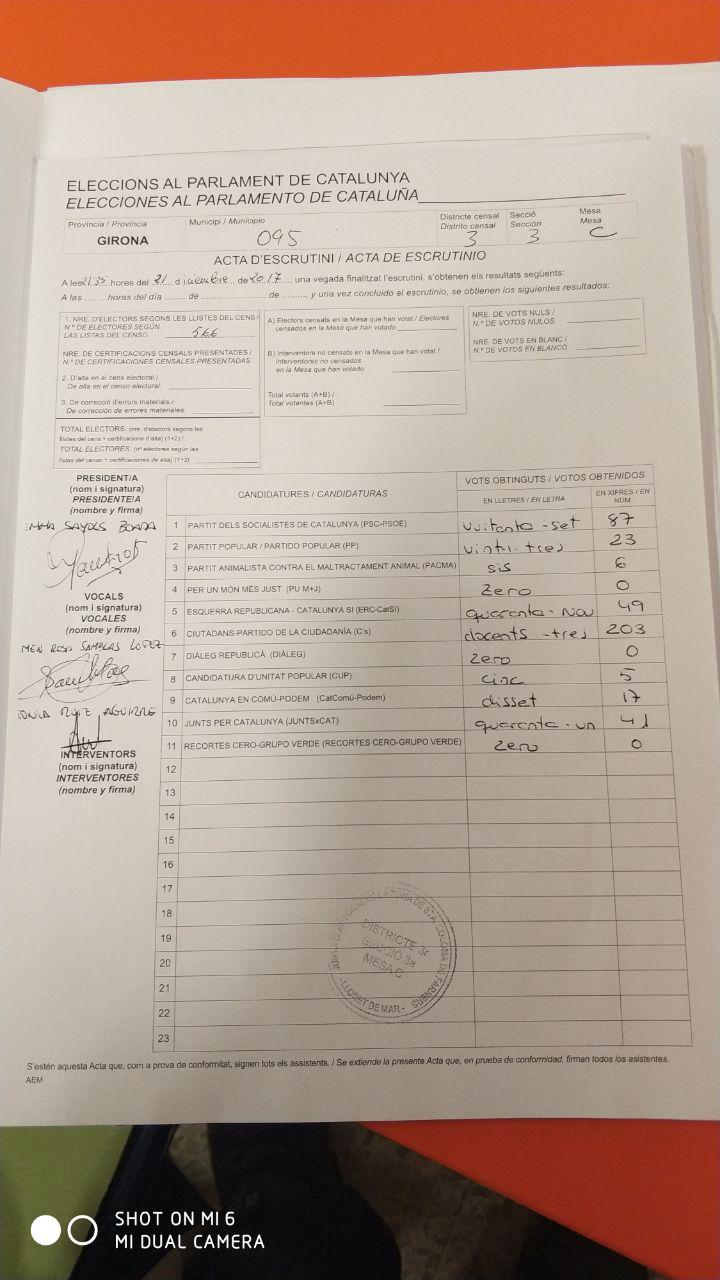 ELECCIONS AL PARLAMENT DE CATALUNYA
ELECCIONES AL PARLAMENTO DE CATALUÑA
Província / Provincia Municipi / Municipio Districte censal Secció Mesa
Distrito censal Sección Mesa
GIRONA 095 3 3 C
ACTA D'ESCRUTINI / ACTA DE ESCRUTINIO
A les 21:35 hores del 21 d desembre de 2017 una vegada finalitzat l'escrutini, s'obtenen els resultats següents:
A las ........ horas del día ....... de ........................... de ........, y una vez concluido el escrutinio, se obtienen los siguientes resultados:
1. NRE. D'ELECTORS SEGONS LES LLISTES DEL CENS /
N.º DE ELECTORES SEGÚN
LAS LISTAS DEL CENSO 566
NRE. DE CERTIFICACIONS CENSALS PRESENTADES /
N.º DE CERTIFICACIONES CENSALES PRESENTADAS
2. D'alta en el cens electoral /
De alta en el censo electoral:
3. De correcció d'errors materials /
De corrección de errores materiales:
TOTAL ELECTORS: (nre. d'electors segons les
llistes del cens + certificacions d'alta) (1+2) /
TOTAL ELECTORES: (nº electores según las
listas del censo + certificaciones de alta) (1+2)
A) Electors censats en la Mesa que han votat / Electores
censados en la Mesa que han votado
B) Interventors no censats en la Mesa que han votat /
Interventores no censados
en la Mesa que han votado
Total votants (A+B) /
Total votantes (A+B)
NRE. DE VOTS NULS /
N.º DE VOTOS NULOS
NRE. DE VOTS EN BLANC /
N.º DE VOTOS EN BLANCO
PRESIDENT/A
(nom i signatura)
PRESIDENTE/A
(nombre y firma)
IMMA SAYOLS BOADA
VOCALS
(nom i signatura)
VOCALES
(nombre y firma)
MEN ROSA SAMBLAS LOPEZ
ONIA RUIZ AGUIRRE
INTERVENTORS
(nom i signatura)
INTERVENTORES
(nombre y firma)
CANDIDATURES / CANDIDATURAS VOTS OBTINGUTS / VOTOS OBTENIDOS
EN LLETRES / EN LETRA EN XIFRES / EN NÚM.
1 PARTIT DELS SOCIALISTES DE CATALUNYA (PSC-PSOE) vuitanta-set 87
2 PARTIT POPULAR / PARTIDO POPULAR (PP) vint-i-tres 23
3 PARTIT ANIMALISTA CONTRA EL MALTRACTAMENT ANIMAL (PACMA) sis 6
4 PER UN MÓN MÉS JUST (PU M+J) Zero 0
5 ESQUERRA REPUBLICANA - CATALUNYA SÍ (ERC-CatSí) quaranta-nou 49
6 CIUTADANS-PARTIDO DE LA CIUDADANÍA (C's) docents-tres 203
7 DIÀLEG REPUBLICÀ (DIÀLEG) zero 0
8 CANDIDATURA D'UNITAT POPULAR (CUP) cinc 5
9 CATALUNYA EN COMÚ-PODEM (CatComú-Podem) disset 17
10 JUNTS PER CATALUNYA (JUNTSxCAT) quaranta-un 41
11 RECORTES CERO-GRUPO VERDE (RECORTES CERO-GRUPO VERDE) Zero 0
12
13
14
15
16
17
18
19
20
21
22
23
DISTRICTE 3r
SECCIÓ 3a
MESA C
- LLORET DE MAR -
S'estén aquesta Acta que, com a prova de conformitat, signen tots els assistents. / Se extiende la presente Acta que, en prueba de conformidad, firman todos los asistentes.
AEM
SHOT ON MI 6
MI DUAL CAMERA